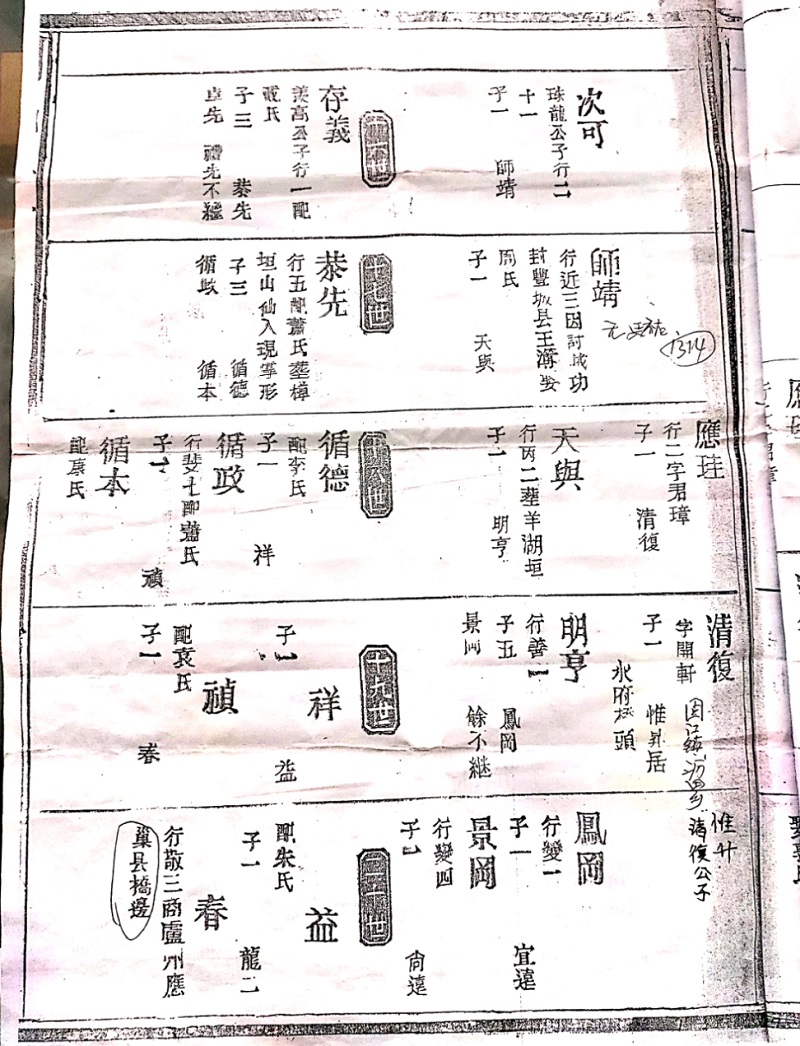 次可
珠龍公子行二
十一
子一 師靖
存義
美高公子行一配
氏
子三 恭先
卓先 禮先不繼
師靖
行近三因討賊功
封豐城县王
周氏
子一 天與
元
1314
十七世
恭先
行五配蕭氏塟樟
垣山仙人現掌形
子三 循德
循政 循本
應珪
行二字君璋
子一 清復
天與
行丙二塟羊湖垣
子一 明亨
十八世
循德
配李氏
子一 祥
循政
行斐七配蕭氏
子一 禎
循本
配袁氏
清復
字開軒
子一 惟昇居
水府杨頭
明亨
行善一
子五 鳳岡
景岡 餘不继
十九世
祥
子一 益
禎
配袁氏
子一 春
惟升
清復公子
鳳岡
行變一
子一 宜遠
景岡
行變四
子一 尚遠
二十世
益
配朱氏
子一 龍二
春
行敬三商廬州應
巢县橋邊